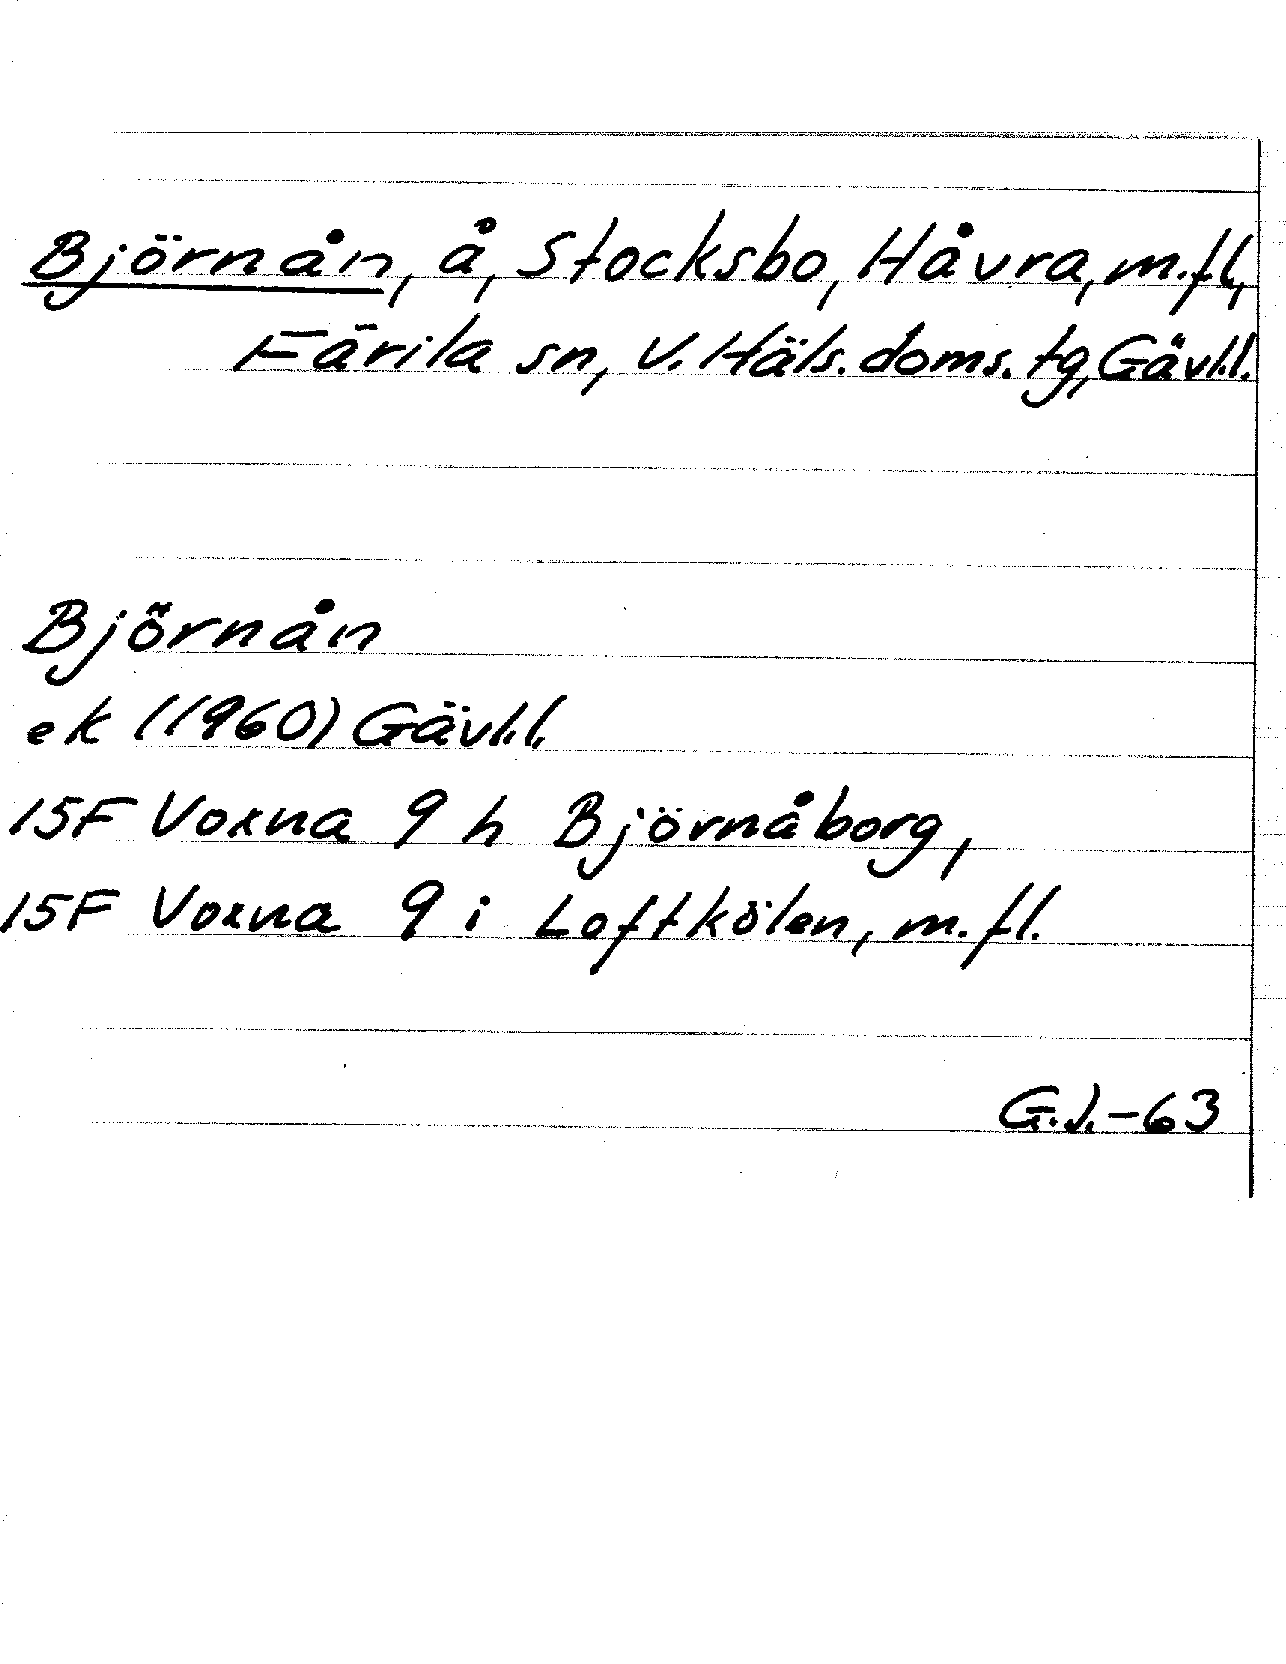 Björnån, å, Stocksbo, Håvra, m.fl,
Färila sn, V. Häls. doms. tg, Gävl.l.
Björnån
ek (1960) Gävl.l.
15F Voxna 9 h Björnåborg,
15F Voxna 9 i Loftkölen, m.fl.
G.J.-63